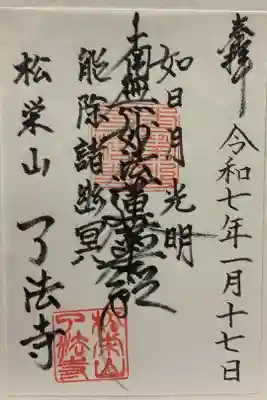 奉拝
令和七年一月十七日
如日月光明
南無妙法蓮華経
能除諸幽冥
松栄山
了法寺
松栄山
了法寺